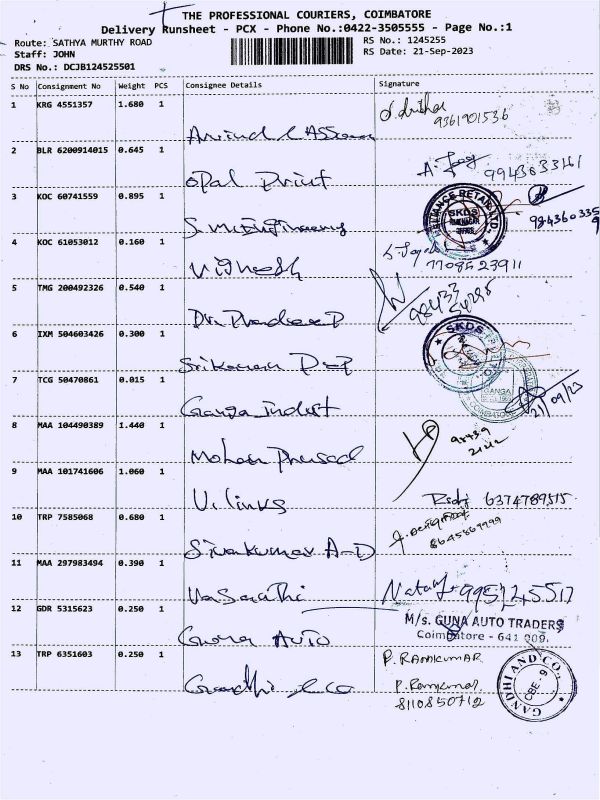 THE PROFESSIONAL COURIERS, COIMBATORE
Delivery Runsheet - PCX - Phone No.:0422-3505555 - Page No.:1
Route: SATHYA MURTHY ROAD
Staff: JOHN
DRS No.: DCJB124525501
RS No.: 1245255
RS Date: 21-Sep-2023
S No Consignment No Weight PCS Consignee Details Signature
1 KRG 4551357 1.680 1
9361901536
Arvind
2 BLR 6200914015 0.645 1
9943633161
Opal Print
3 KOC 60741559 0.895 1
RELIANCE RETAIL LTD
SKDS
4 KOC 61053012 0.160 1
7708523911
Vighnesh
5 TMG 200492326 0.540 1
98433
54295
Dr.
6 IXM 504603426 0.300 1
SKDS
7 TCG 50470861 0.015 1
GANGA
21/09/23
Ganga Indust
8 MAA 104490389 1.440 1
Mohan Prasad
9 MAA 101741606 1.060 1
6374789515
V. links
10 TRP 7585068 0.680 1
Sivakumar A-D
11 MAA 297983494 0.390 1
Vasanthi
12 GDR 5315623 0.250 1
M/s. GUNA AUTO TRADERS
Coimbatore - 641 009.
Guna Auto
13 TRP 6351603 0.250 1
P. RAMKUMAR
P. Ramkumar
8110850712
GANDHI AND CO.,
CBE-9
Gandhi & Co